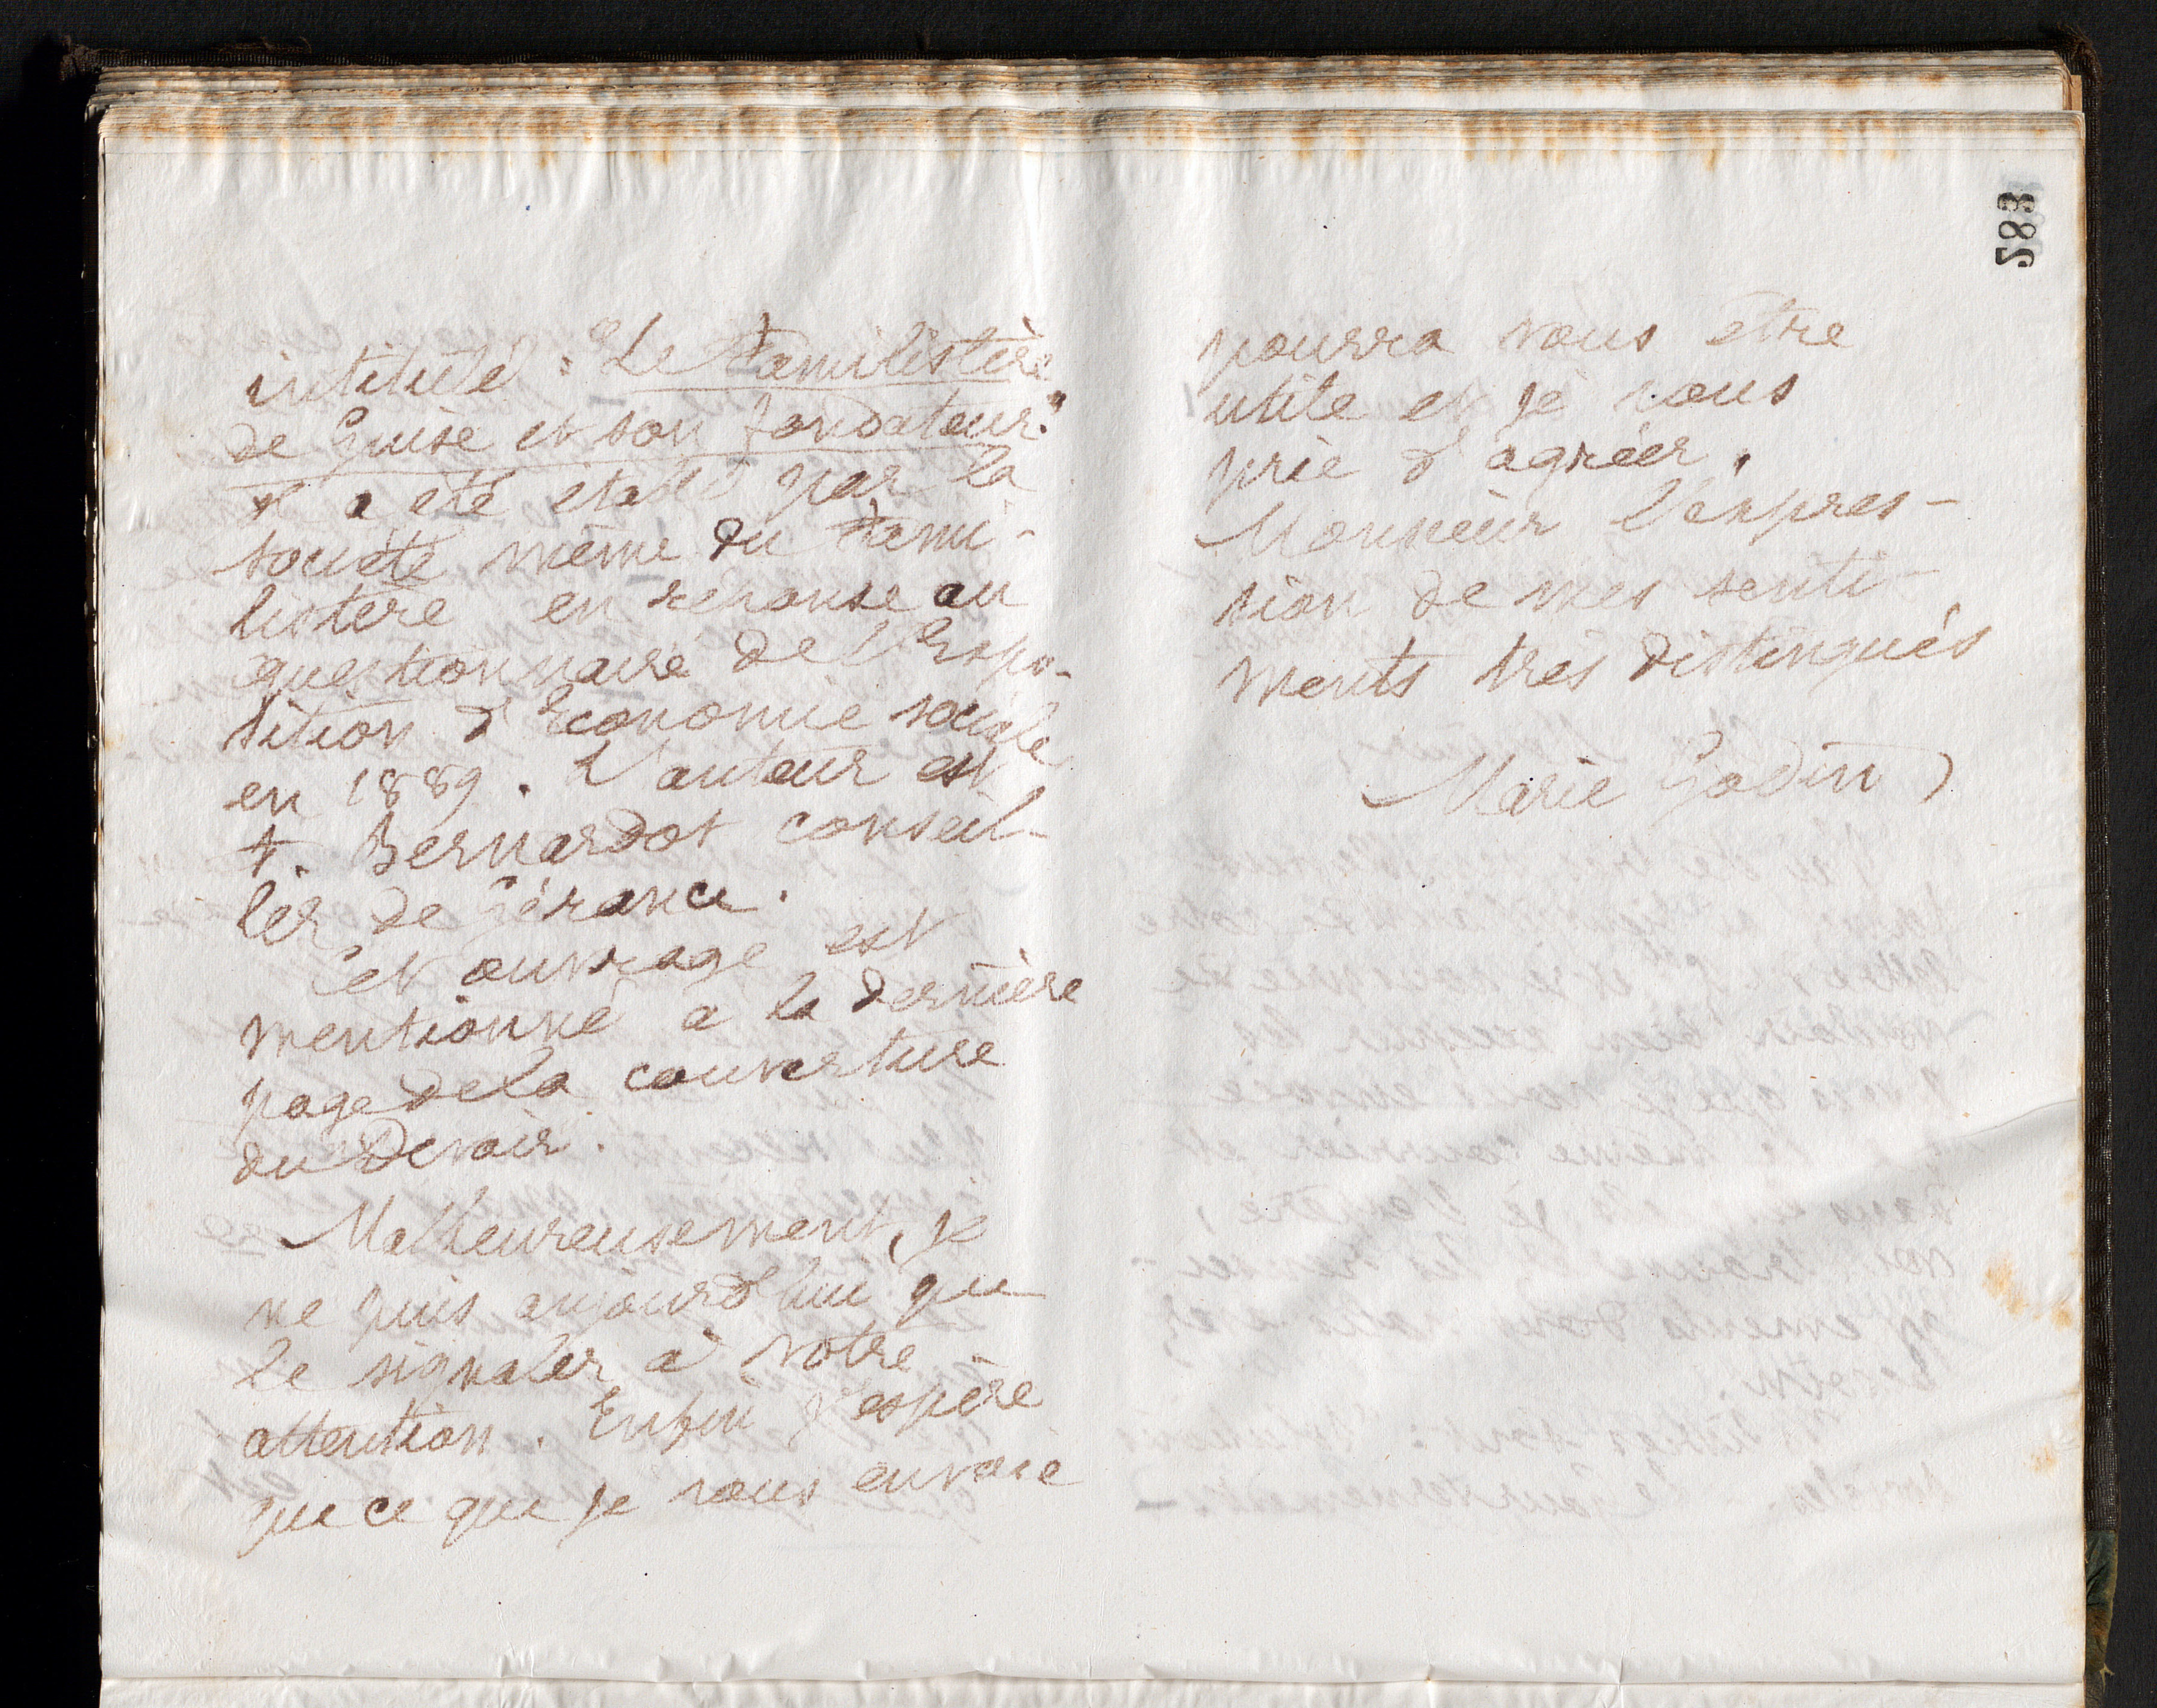 intitulé : "Le Familistère
de Guise et son fondateur."
Il a été établi par la
société même du Fami-
listère en réponse au
questionnaire de l'Expo-
sition d'Economie sociale
en 1889. L'auteur est
F. Bernardot conseil-
ler de Gérance.
Cet ouvrage est
mentionné à la dernière
page de la couverture
du Devoir.
Malheureusement, je
ne puis aujourd'hui que
le signaler à votre
attention. Enfin j'espère
que ce que je vous envoie
583
pourra vous être
utile et je vous
prie d'agréer,
Monsieur l'expres-
sion de mes senti-
ments très distingués
Marie Godin